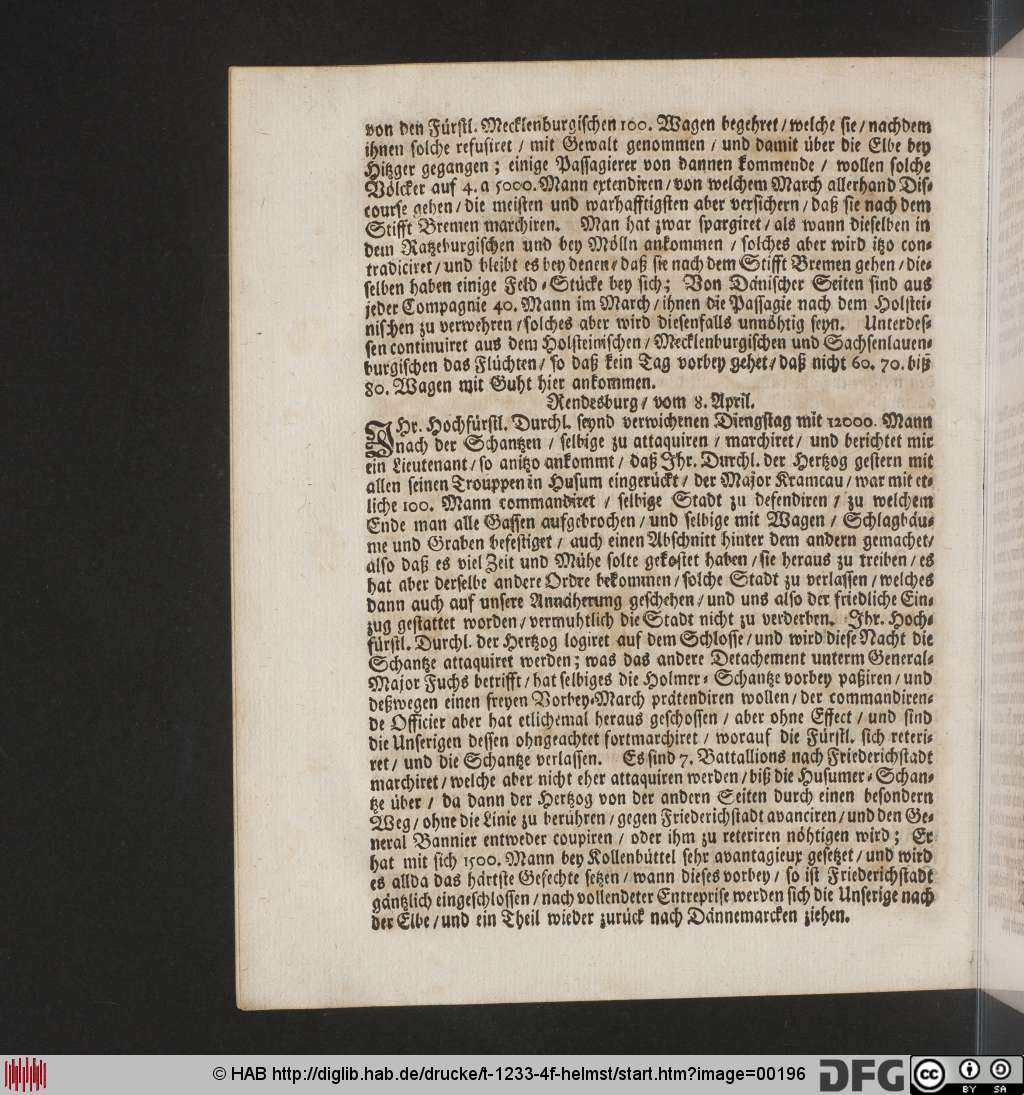 von den Fürstl. Mecklenburgischen 100. Wagen begehret / welche sie / nachdem
ihnen solche refusiret / mit Gewalt genommen / und damit über die Elbe bey
Hitzger gegangen ; einige Passagierer von dannen kommende / wollen solche
Völcker auf 4. a 5000. Mann extendiren / von welchem March allerhand Dis-
course gehen / die meisten und warhafftigsten aber versichern / daß sie nach dem
Stifft Bremen marchiren. Man hat zwar spargiret / als wann dieselben in
dem Ratzeburgischen und bey Mölln ankommen / solches aber wird itzo con-
tradiciret / und bleibt es bey denen / daß sie nach dem Stifft Bremen gehen / die-
selben haben einige Feld-Stücke bey sich ; Von Dänischer Seiten sind aus
jeder Compagnie 40. Mann im March / ihnen die Passagie nach dem Holstei-
nischen zu verwehren / solches aber wird diesenfalls unnöhtig seyn. Unterdes-
sen continuiret aus dem Holsteinischen / Mecklenburgischen und Sachsenlauen-
burgischen das Flüchten / so daß kein Tag vorbey gehet / daß nicht 60. 70. biß
80. Wagen mit Guht hier ankommen.
Rendesburg / vom 8. April.
IHr. Hochfürstl. Durchl. seynd verwichenen Diengstag mit 12000. Mann
nach der Schantzen / selbige zu attaquiren / marchiret / und berichtet mir
ein Lieutenant / so anitzo ankommt / daß Ihr. Durchl. der Hertzog gestern mit
allen seinen Trouppen in Husum eingerückt / der Major Kramcau / war mit et-
liche 100. Mann commandiret / selbige Stadt zu defendiren / zu welchem
Ende man alle Gassen aufgebrochen / und selbige mit Wagen / Schlagbäu-
me und Graben befestiget / auch einen Abschnitt hinter dem andern gemachet /
also daß es viel Zeit und Mühe solte gekostet haben / sie heraus zu treiben / es
hat aber derselbe andere Ordre bekommen / solche Stadt zu verlassen / welches
dann auch auf unsere Annäherung geschehen / und uns also der friedliche Ein-
zug gestattet worden / vermuhtlich die Stadt nicht zu verderben. Ihr. Hoch-
fürstl. Durchl. der Hertzog logiret auf dem Schlosse / und wird diese Nacht die
Schantze attaquiret werden ; was das andere Detachement unterm General-
Major Fuchs betrifft / hat selbiges die Holmer-Schantze vorbey paßiren / und
deßwegen einen freyen Vorbey-March prätendiren wollen / der commandiren-
de Officier aber hat etlichemal heraus geschossen / aber ohne Effect / und sind
die Unserigen dessen ohngeachtet fortmarchiret / worauf die Fürstl. sich reteri-
ret / und die Schantze verlassen. Es sind 7. Battallions nach Friederichstadt
marchiret / welche aber nicht eher attaquiren werden / biß die Husumer-Schan-
tze über / da dann der Hertzog von der andern Seiten durch einen besondern
Weg / ohne die Linie zu berühren / gegen Friederichstadt avanciren / und den Ge-
neral Bannier entweder coupiren / oder ihm zu reteriren nöhtigen wird ; Er
hat mit sich 1500. Mann bey Kollenbüttel sehr avantagieux gesetzet / und wird
es allda das härtste Gefechte setzen / wann dieses vorbey / so ist Friederichstadt
gäntzlich eingeschlossen / nach vollendeter Entreprise werden sich die Unserige nach
der Elbe / und ein Theil wieder zurück nach Dännemarcken ziehen.
© HAB http://diglib.hab.de/drucke/t-1233-4f-helmst/start.htm?image=00196
DFG
cc BY SA